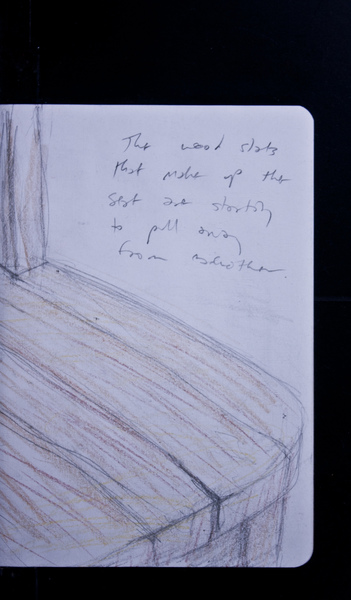 The wood slats
that make up the
seat are starting
to pull away
from